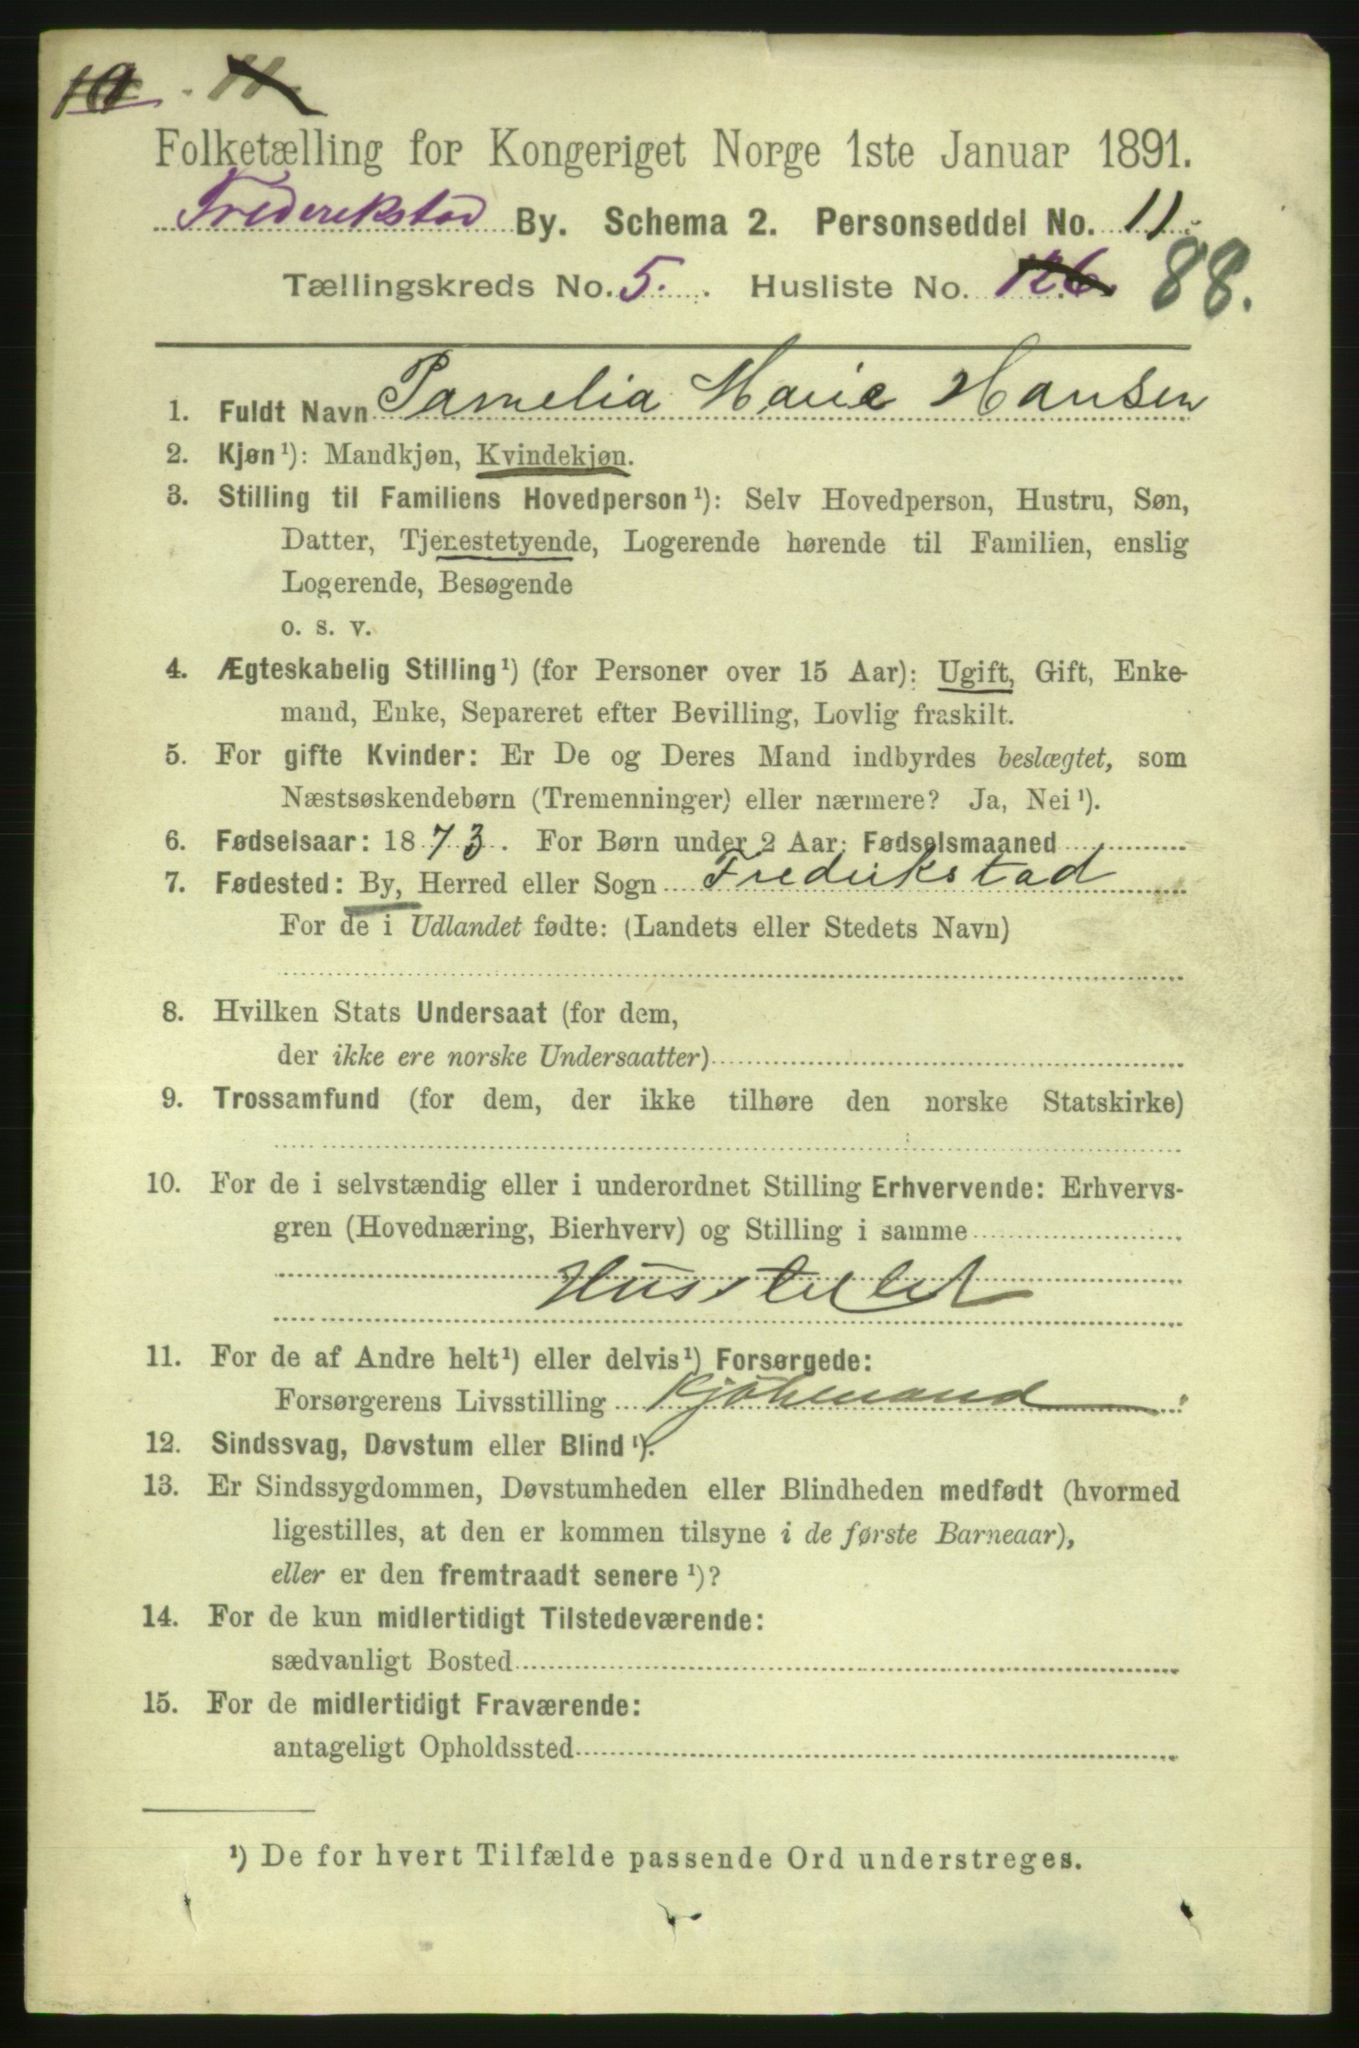 10 . 11.
Folketælling for Kongeriget Norge 1ste Januar 1891.
Frederikstad By. Schema 2. Personseddel No. 11.
Tællingskreds No. 5. Husliste No. 126. 88.
1. Fuldt Navn Pamelia Marie Hansen
2. Kjøn¹): Mandkjøn, Kvindekjøn.
3. Stilling til Familiens Hovedperson¹): Selv Hovedperson, Hustru, Søn,
Datter, Tjenestetyende, Logerende hørende til Familien, enslig
Logerende, Besøgende
o. s. v.
4. Ægteskabelig Stilling¹) (for Personer over 15 Aar): Ugift, Gift, Enke-
mand, Enke, Separeret efter Bevilling, Lovlig fraskilt.
5. For gifte Kvinder: Er De og Deres Mand indbyrdes beslægtet, som
Næstsøskendebørn (Tremenninger) eller nærmere? Ja, Nei¹).
6. Fødselsaar: 1873. For Børn under 2 Aar: Fødselsmaaned
7. Fødested: By, Herred eller Sogn Fredrikstad
For de i Udlandet fødte: (Landets eller Stedets Navn)
8. Hvilken Stats Undersaat (for dem,
der ikke ere norske Undersaatter)
9. Trossamfund (for dem, der ikke tilhøre den norske Statskirke)
10. For de i selvstændig eller i underordnet Stilling Erhvervende: Erhvervs-
gren (Hovednæring, Bierhverv) og Stilling i samme
Husstellet
11. For de af Andre helt¹) eller delvis¹) Forsørgede:
Forsørgerens Livsstilling
12. Sindssvag, Døvstum eller Blind¹).
13. Er Sindssygdommen, Døvstumheden eller Blindheden medfødt (hvormed
ligestilles, at den er kommen tilsyne i de første Barneaar),
eller er den fremtraadt senere¹)?
14. For de kun midlertidigt Tilstedeværende:
sædvanligt Bosted
15. For de midlertidigt Fraværende:
antageligt Opholdssted
¹) De for hvert Tilfælde passende Ord understreges.